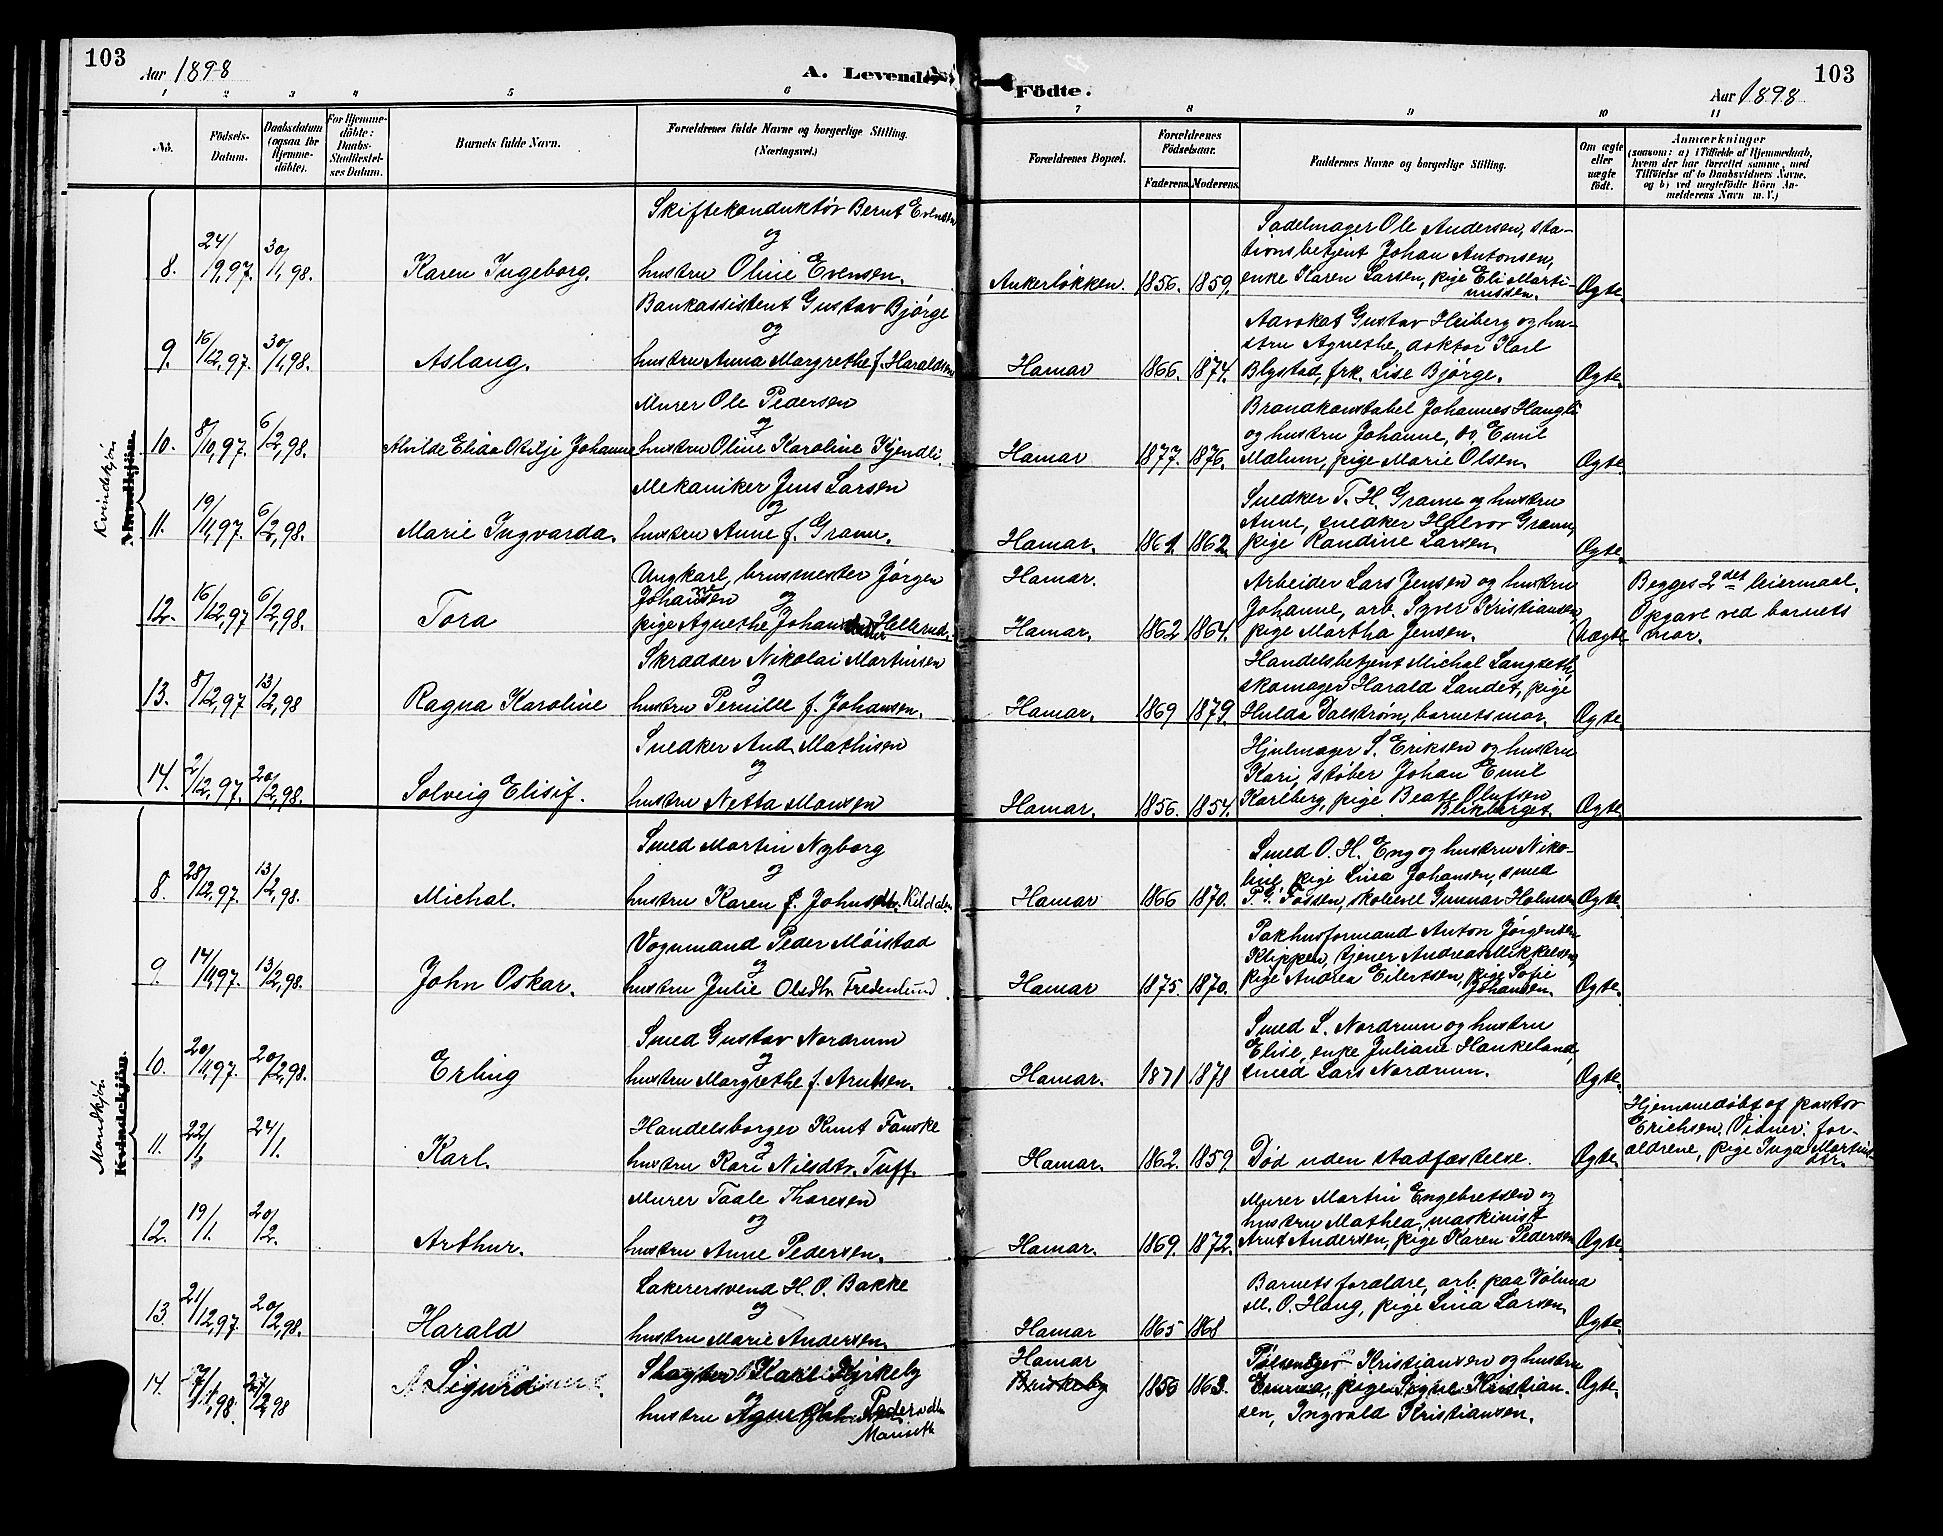 103
Aar 1898
A. Levende
Födte.
Aar 1898.
103
1 2 3 4 5 6 7 8 9 10 11
No.
Födsels-Datum.
Daabsdatum (ogsaa for Hjemme-döbte).
For Hjemme-döbte: Daabs-Stadfæstel-ses Datum.
Barnets fulde Navn.
Forældrenes fulde Navne og borgerlige Stilling. (Næringsvei.)
Forældrenes Bopæl.
Forældrenes Födselsaar.
Faderens. Moderens.
Faddernes Navne og borgerlige Stilling.
Om ægte eller uægte födt.
Anmærkninger
(saasom: a) i Tilfælde af Hjemmedaab, hvem der har forrettet samme, med Tilföielse af to Daabsvidners Navne, og b) ved uægtefödte Börn Anmelderens Navn m. V.)
Kvindekjön
Mandkjön.
Skiftekonduktør Bernt Evensen
og
8. 24/9,97. 30/1,98. Karen Ingeborg. hustru Oline Evensen. Ankerløkken. 1856. 1859.
Sadelmager Ole Andersen, sta-
tionsbetjent Johan Antonsen,
enke Karen Larsen, pige Eli Marti-
nussen. Ægte
Bankassistent Gustav Bjørge
og
9. 16/12,97. 30/1,98. Aslaug. hustru Anna Margrethe f. Haraldsen Hamar 1866. 1874.
Advokat Gustav Heiberg og hu-
stru Agnethe, doktor Karl
Blystad, frk. Lise Bjørge. Ægte.
Murer Ole Pedersen
og
10. 8/10,97. 6/2,98. Alvilde Elida Otilje Johanne hustru Oline Karoline Kjendli. Hamar 1877. 1876.
Brandkonstabel Johannes Haugli
og hustru Johanne, do. Emil
Mælum, pige Marie Olsen. Ægte.
Mekaniker Jens Larsen
og
11. 19/11,97. 6/2,98. Marie Ingvarda. hustru Anne f. Gramm. Hamar. 1861. 1862.
Snedker T. H. Gramm og hustru
Anne, snedker Halvor Gramm,
pige Randine Larsen. Ægte
Ungkarl, brusmester Jørgen
Johansen og
12. 16/12,97 6/2,98. Tora pige Agnethe Johansdatter Hellerud. Hamar. Hamar. 1862 1864.
Arbeider Lars Jensen og hustru
Johanne, arb. Syver Kristiansen,
pige Martha Jensen. Uægte
Begges 2det leiermaal.
Opgave ved barnets
mor.
Skrædder Nikolai Martinsen
og
13. 8/12,97 13/2,98 Ragna Karoline hustru Pernille f. Johansen. Hamar. 1869 1879.
Handelsbetjent Michal Langseth,
skomager Harald Landet, pige
Hulda Dalstrøm, barnets mor. Ægte.
Snedker And. Mathisen
og
14. 2/12,97. 20/2,98. Solveig Elisif. hustru Netta Monsen Hamar. 1856. 1854.
Hjulmager S. Eriksen og hustru
Kari, støber Johan Emil
Karlberg, pige Beate Olufsen
Blikberget. Ægte
Mandkjön
Kvindekjön.
Smed Martin Nyborg
og
8. 28/12,97. 13/2,98. Michal. hustru Karen f. Johnsdtr. Kildalen Hamar 1866 1870.
Smed O. H. Eng og hustru Niko-
line, pige Lina Johansen, smed
P. G. Fossen, skoleelel Gunnar Holmsen Ægte.
Vognmand Peder Møistad
og
9. 14/11,97. 13/2,98. John Oskar. hustru Julie Olsdtr. Fredenlund Hamar 1875. 1870.
Pakhusformand Anton Jørgensen
Klippen, tjener Andreas Mikkelsen,
pige Andrea Eilertsen, pige Sofie
Johansen. Ægte.
Smed Gustav Nordrum
og
10. 20/11,97. 20/2,98. Erling hustru Margrethe f. Arntsen. Hamar. 1871 1878
Smed L. Nordrum og hustru
Elise, enke Juliane Haukeland,
smed Lars Nordrum. Ægte.
Handelsborger Knut Fauske
og
11. 22/1 24/1. Karl. hustru Kari Nilsdtr. Tuff. Hamar. 1862. 1859 Død uden stadfæstelse. Ægte.
Hjemmedøbt af pastor
Erichsen. Vidner: for-
ældrene, pige Inga Martins
dtr.
Murer Taale Thoresen
og
12. 19/1. 20/2. Arthur. hustru Anne Pedersen. Hamar. 1869. 1872.
Murer Martin Engebretsen og
hustru Mathea, maskinist
Arnt Andersen, pige Karen Pedersen Ægte.
Lakerersvend H. O. Bakke
og
13. 21/12,97. 20/2,98. Harald hustru Marie Andersen Hamar 1865 1868
Barnets forældre, arb. paa Vølund
M. O. Haug, pige Lina Larsen. Ægte
Slagter Karl Kirkeby
og
14. 17/1,98. 27/2,98 Sigurd hustru Pedersdtr. Hamar 1856 1863.
Kristiansen og hustru
Emma, pige Signe Kristian-
sen, Ingvald Kristiansen. Ægte.